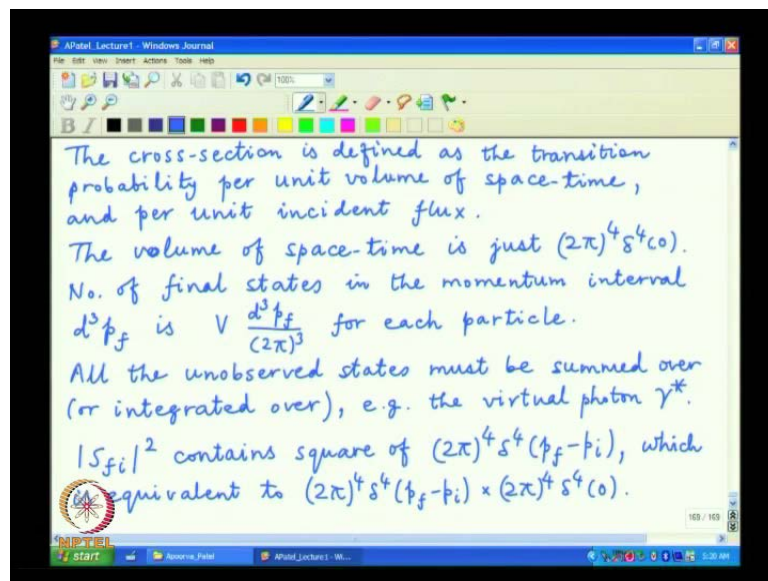 APatel_Lecture1 - Windows Journal
File Edit View Insert Actions Tools Help
100%
B I
The cross-section is defined as the transition
probability per unit volume of space-time,
and per unit incident flux.
The volume of space-time is just (2π)⁴ δ⁴(0).
No. of final states in the momentum interval
d³p_f is V d³p_f/(2π)³ for each particle.
All the unobserved states must be summed over
(or integrated over), e.g. the virtual photon γ*.
|S_fi|² contains square of (2π)⁴ δ⁴(p_f-p_i), which
is equivalent to (2π)⁴ δ⁴(p_f-p_i) × (2π)⁴ δ⁴(0).
169 / 169
NPTEL
start Apoorva_Patel APatel_Lecture1 - Wi... 5:20 AM